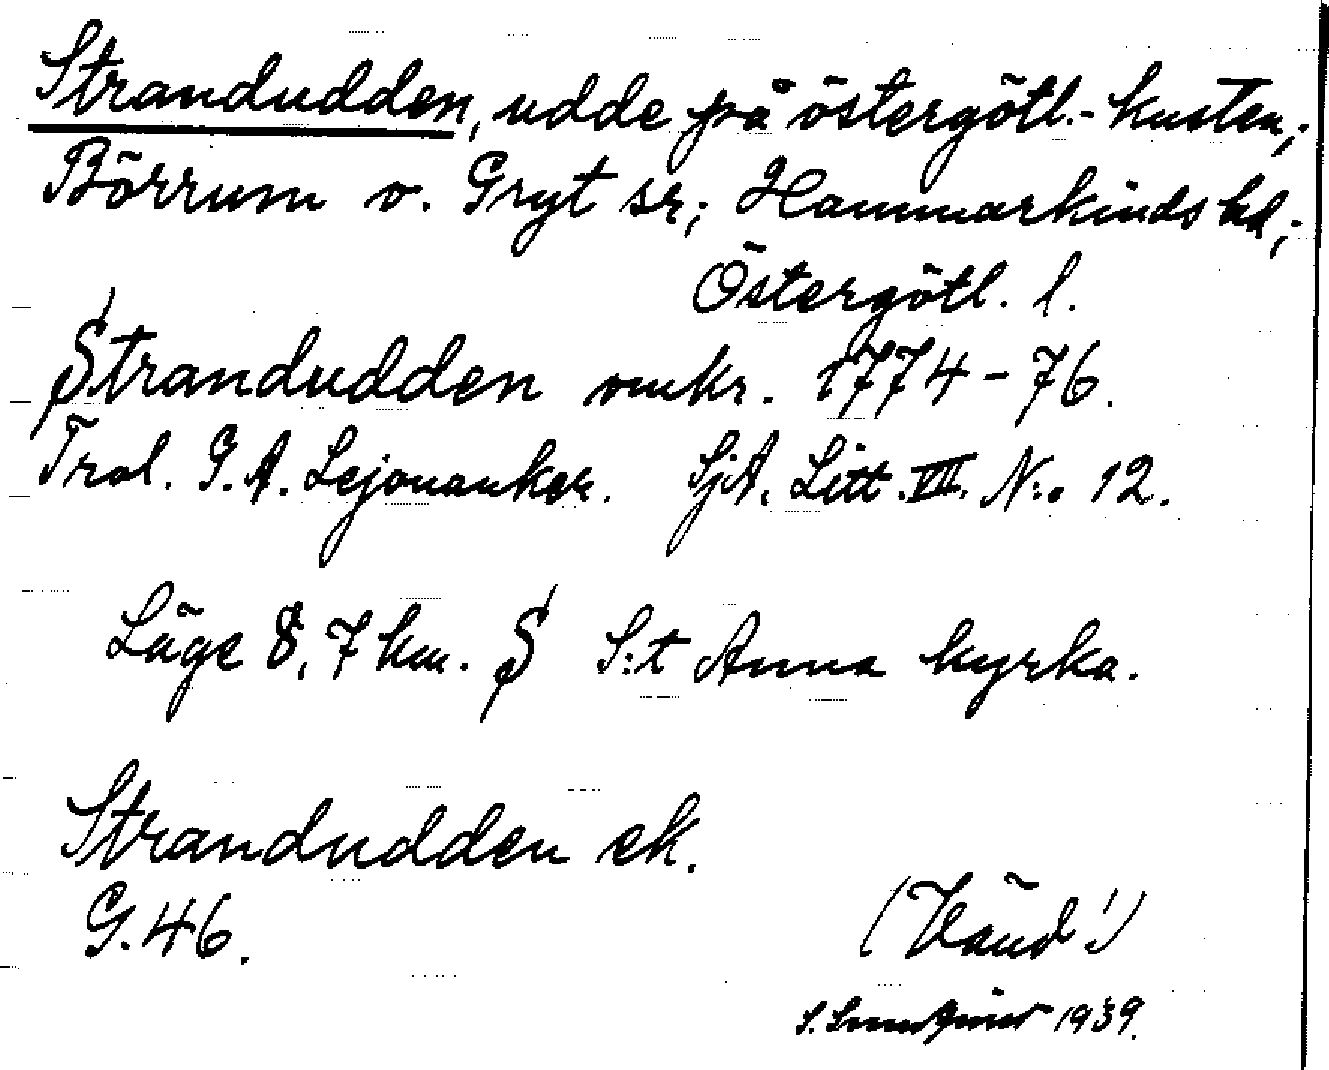 Strandudden, udde på östergötl.-kusten,;
Börrum o. Gryt sr; Hammarkinds hd,;
Östergötl. l.
Strandudden omkr. 1774-76.
Trol. G. A. Lejonanker. SjA. Litt. VII. N:o 12.
Läge 8,7 km. S S:t Anna kyrka.
Strandudden ek.
G. 46.
(Vänd!)
1939.